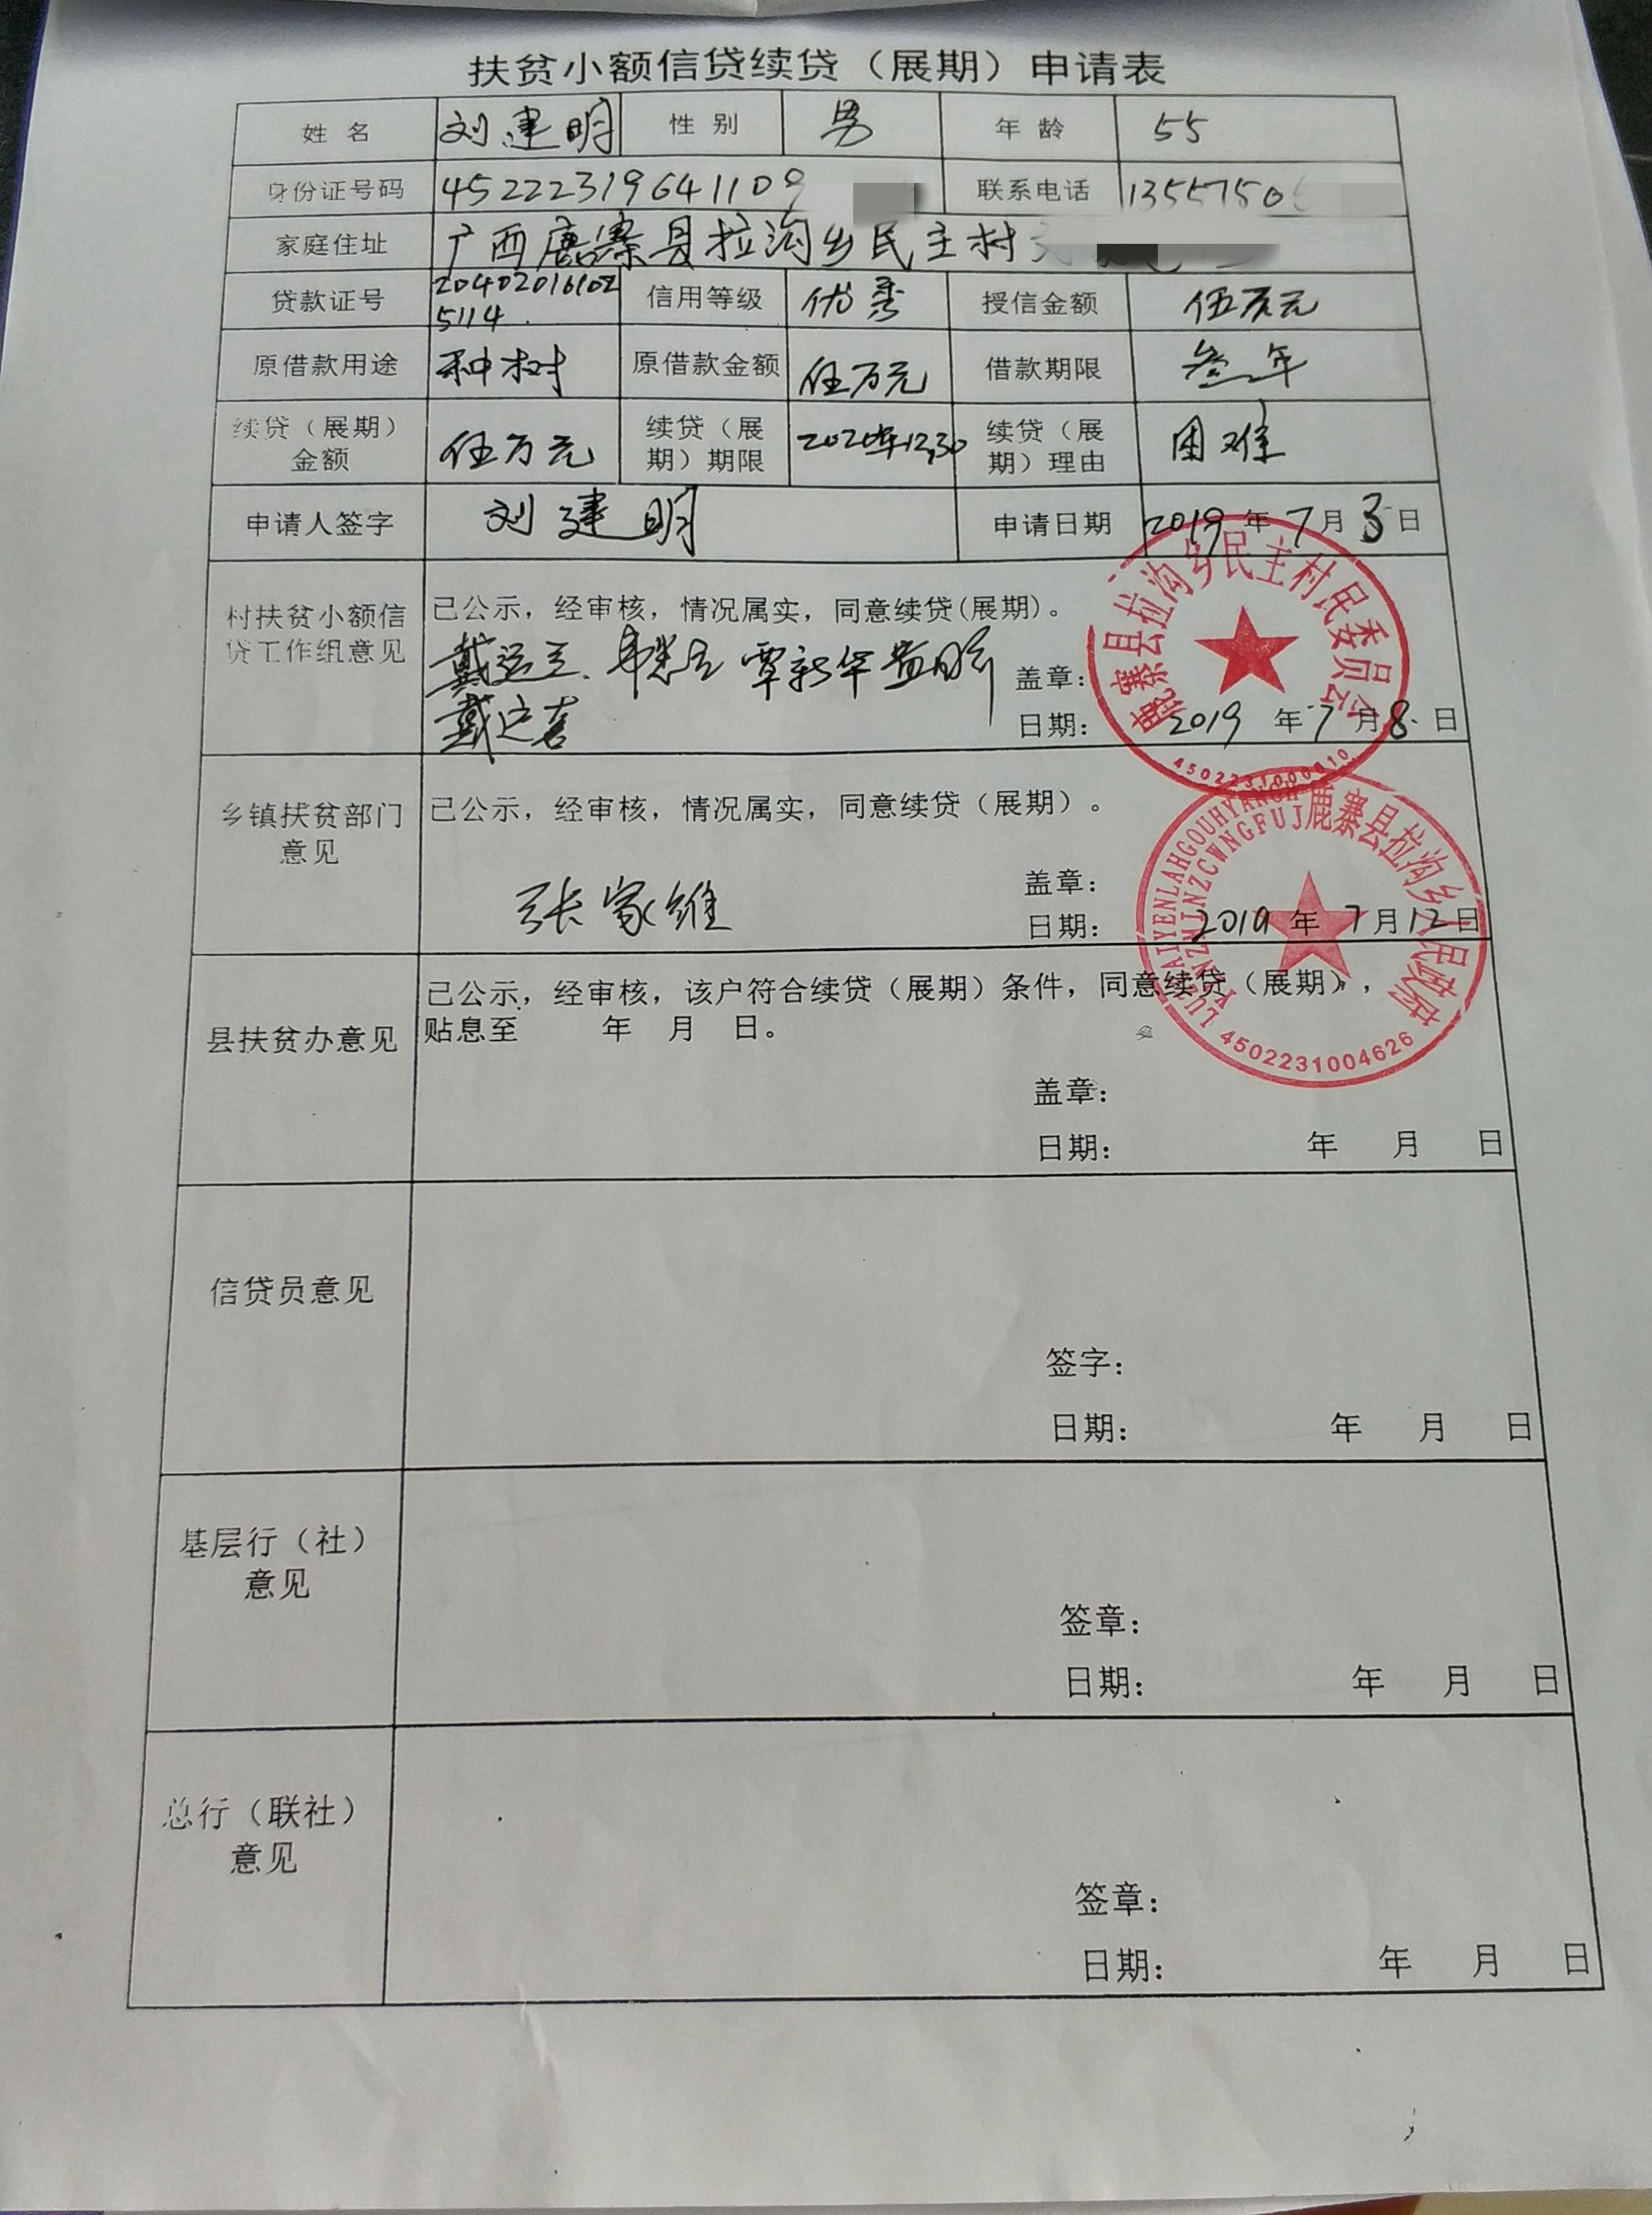 扶贫小额信贷续贷（展期）申请表
姓 名 刘建明 性 别 男 年 龄 55
身份证号码 45222319641109 联系电话 13557505
家庭住址 广西鹿寨县拉沟乡民主村
贷款证号 204020161025114 信用等级 优秀 授信金额 伍万元
原借款用途 种树 原借款金额 伍万元 借款期限 叁年
续贷（展期）金额 伍万元 续贷（展期）期限 2020年12.30 续贷（展期）理由 困难
申请人签字 刘建明 申请日期 2019年7月3日
村扶贫小额信贷工作组意见
已公示，经审核，情况属实，同意续贷(展期)。
戴运 覃新华
戴运
盖章：
日期： 2019年7月8日
鹿寨县拉沟乡民主村民委员会
4502231000
乡镇扶贫部门意见
已公示，经审核，情况属实，同意续贷（展期）。
张家维
盖章：
日期： 2019年7月12日
鹿寨县拉沟乡人民政府
4502231004626
县扶贫办意见
已公示，经审核，该户符合续贷（展期）条件，同意续贷（展期），
贴息至 年 月 日。
盖章：
日期： 年 月 日
信贷员意见
签字：
日期： 年 月 日
基层行（社）意见
签章：
日期： 年 月 日
总行（联社）意见
签章：
日期： 年 月 日